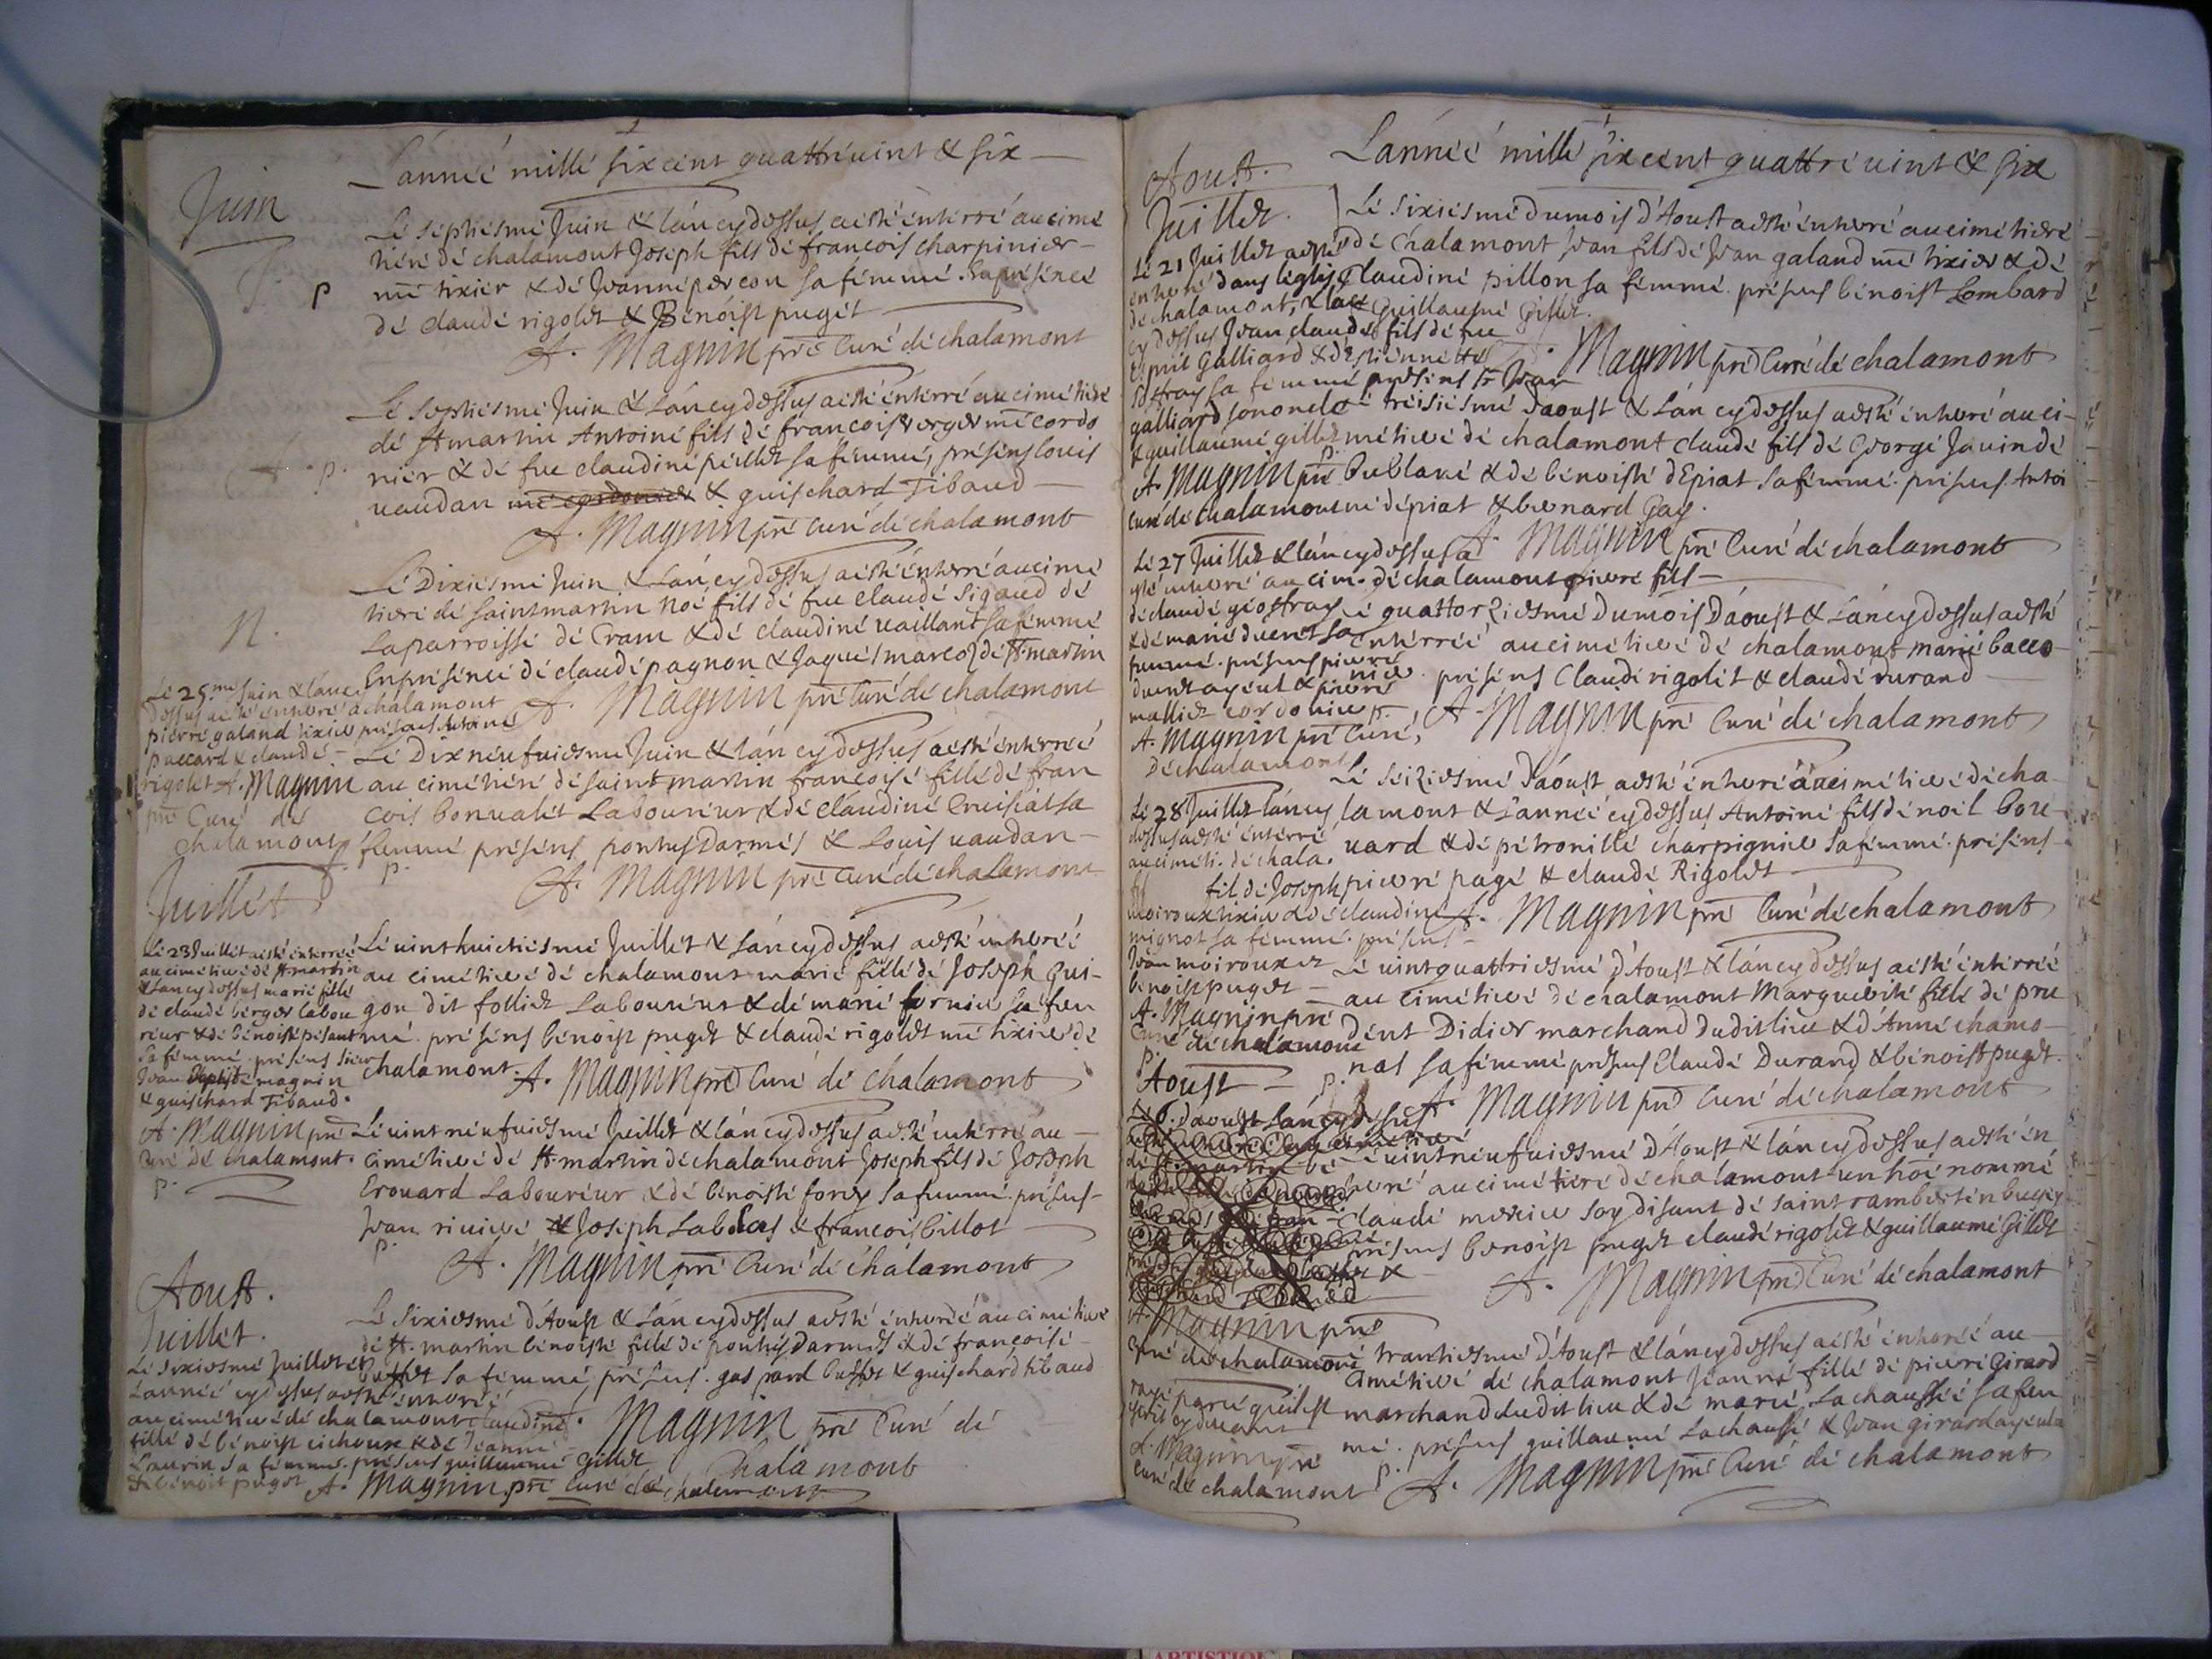 L'année mille six cent quattre uint & six
Juin
Le septiesme Juin & l'an cy dessus a esté enterré au cime
tiere de chalamont Joseph fils de francois charpinier
me tixier & de Jeanne percon sa femme. En presence
P
de claude rigolet & Benoist puget
A. Magnin pre Curé de chalamont
Le septiesme Juin & L'an cy dessus a esté enterré au cimetiere
de st martin Antoine fils de francois verger me cordo
nier & de fue claudine peillet sa femme, presens louis
p.
vaudan me cordonier & guischard Tibaud
A. Magnin pre Curé de chalamont
Le Dixiesme Juin & L'an cy dessus a esté enterré au cime
tiere de saint martin Noé fils de fue claude sigaud de
N.
La parroisse de Cram & de claudine vaillant sa femme
En presence de claude pagnon & Jaques marcoz de st martin
A. Magnin pre Curé de chalamont
Le 25me Juin & l'an cy
dessus a esté enterré a chalamont
pierre galand tixier presens Antoine
paccard & claude
rigolet A. Magnin
pre Curé de
chalamont
Le Dix neufuiesme Juin & l'an cy dessus a esté enterreé
au cimetiere de saint martin francoise fille de fran
cois bonualet Laboureur & de claudine Cruisiat sa
femme presens pontus Darmes & Louis vaudan
p.
A. Magnin pre Curé de chalamont
Juillet
Le 23 Juillet a esté enterreé
au cimetiere de st martin
& L'an cy dessus marie fille
de claude berger labou
reur & de benoiste pesant
sa femme. presens sieur
Jean Baptiste magnin
& guischard Tibaud.
A. Magnin pre
Curé de chalamont.
p.
Le uint huictiesme Juillet & L'an cy dessus a esté enterreé
au cimetiere de chalamont marie fille de Joseph Gui-
gon dit follier Laboureur & de marie fornier sa fem
me. presens benoist puget & claude rigolet me tixier de
chalamont. A. Magnin pre Curé de chalamont
Le uint neufuiesme Juillet & l'an cy dessus a esté enterré au
cimetiere de st martin de chalamont Joseph fils de Joseph
Erouard Laboureur & de benoiste forey sa femme. presens
Jean riuiere & Joseph Labalas & francois billot
p.
A. Magnin pre Curé de chalamont
Aoust.
Le sixiesme d'Aoust & L'an cy dessus a esté enterreé au cimetiere
de st. martin benoiste fille de pontus Darmes & de francoise
buffet sa femme, presens. gaspard buffet & guischard tibaud
A. Magnin pre Curé de
Chalamont
Juillet.
Le sixiesme Juillet &
L'année cy dessus a esté enterreé
au cimetiere de chalamont claudine
fille de benoist cichoux & de Jeanne
Laurin sa femme. presens guillaume gillet
& benoit puget A. Magnin pre Curé de chalamont
L'année mille six cent quattre uint & six
Aoust.
Le sixiesme du mois d'Aoust a esté enterré au cimetiere
de chalamont Jean fils de Jean galand me tixier & de
Claudine pillon sa femme. presens benoist Lombard
& Guillaume Gillet.
A. Magnin pre Curé de chalamont
Juillet.
Le 21 Juillet a esté
enterré dans l'eglise
de chalamont, & l'an
cy dessus Jean claude fils de fue
Esprit Galliard & d'Estiennette
Jofray sa femme presens sr Jean
galliard son oncle
& guillaume gillet
A. Magnin pre
Curé de Chalamont
Le treisiesme d'aoust & L'an cy dessus a esté enterré au ci-
metiere de chalamont claude fils de George Jauin de
Bublane & de benoiste dEpiat sa femme. presens. Antoi
ne dépiat & bernard Gay.
p.
A. Magnin pre Curé de chalamont
Le 27 Juillet & l'an cy dessus a
esté enterré au cim. de chalamont pierre fils
de claude geoffray
& de marie dueret sa
femme. presens pierre
dueret ayeul & pierre
mallier cordonier
A. Magnin pre Curé
De chalamont
Le quattorziesme du mois D'aoust & L'an cy dessus a esté
enterreé au cimetiere de chalamont marie bacco
nier. presens Claude rigolet & claude durand
A. Magnin pre Curé de chalamont
Le seiziesme d'aoust a esté enterré au cimetiere de cha
lamont & L'année cy dessus Antoine fils de noel bou
uard & de petronille charpignier sa femme. presens
pierre page & claude Rigolet
A. Magnin pre Curé de chalamont
Le 28 Juillet l'an cy
dessus a esté enterré
au cimeti. de chala.
fil de Joseph
moiroux tixier & de claudine
mignot sa femme. presens
Jean moiroux &
benoist puget
A. Magnin pre
Curé de chalamont
p.
Le uint quattriesme d'Aoust & l'an cy dessus a esté enterreé
au cimetiere de chalamont Marguerite fille de pru
dent Didier marchand dudit lieu & d'Anne chamo
nas sa femme presens Claude Durand & benoist puget.
p.
A. Magnin pre Curé de chalamont
Aoust
Le 6. d'aoust L'an cy dessus
de st martin
A. Magnin pre
Curé de chalamont
rayé parce qu'il est
escrit cy deuant
A. Magnin pre
Curé de chalamont
Le uint neufuiesme D'Aoust & l'an cy dessus a esté en
terré au cimetiere de chalamont un hoe nommé
Claude mercier soy disant de saint rambert en bugey
presens benoist puget claude rigolet & guillaume Gillet
A. Magnin pre Curé de chalamont
Le trantiesme d'Aoust & l'an cy dessus a esté enterreé au
cimetiere de chalamont Jeanne fille de pierre Girard
marchand dudit lieu & de marie Lachaussée sa fem
me. presens guillaume Lachausse & Jean girard ayeul
p.
A. Magnin pre Curé de chalamont